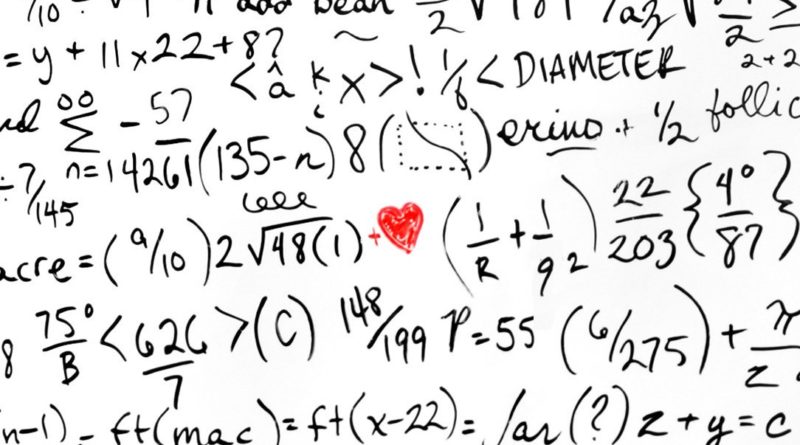 /10 add bean /2 √ /az √ /2 ≥
= y + 11x22+8? 2+2
<â k x>! 1/6 < DIAMETER
∞ Σ -57/14261 (135-n) 8 ( ) erino + 1/2 follic
n=
÷7/145
acre = (a/10) 2√48(1) + ♥ (1/R + 1/9 2) 22/203 {4°/87}
8 75°/B <626/7 >(C) 148/199 P=55 (6/275) + /z
n-1) = ft(mac)= ft(x-22)= /ar(?) z+y=c